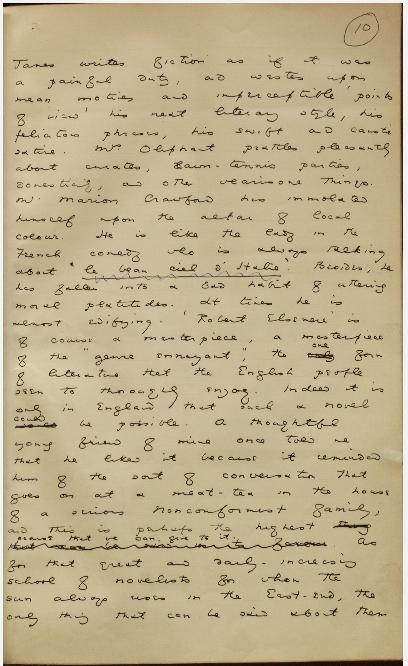 10
James writes fiction as if it was
a painful duty, and wastes upon
mean motives and imperceptible 'points
of view' his neat literary style, his
felicitous phrases, his swift and caustic
satire. Mrs Oliphant prattles pleasantly
about curates, lawn-tennis parties,
domesticity, and other wearisome things.
Mr. Marion Crawford has immolated
himself upon the altar of local
colour. He is like the lady in the
French comedy who is always talking
about "le beau ciel d'Italie". Besides, he
has fallen into a bad habit of uttering
moral platitudes. At times he is
almost edifying. 'Robert Elsmere' is
of course a masterpiece, a masterpiece
of the "genre ennuyeux", the one form
of literature that the English people
seem to thoroughly enjoy. Indeed it is
only in England that such a novel
could be possible. A thoughtful
young friend of mine once told me
that he liked it because it reminded
him of the sort of conversation that
goes on at a meat-tea in the house
of a serious Nonconformist family,
and this is perhaps the highest
praise that we can give to it. As
for that great and daily-increasing
school of novelists for whom the
sun always rises in the East-End, the
only thing that can be said about them